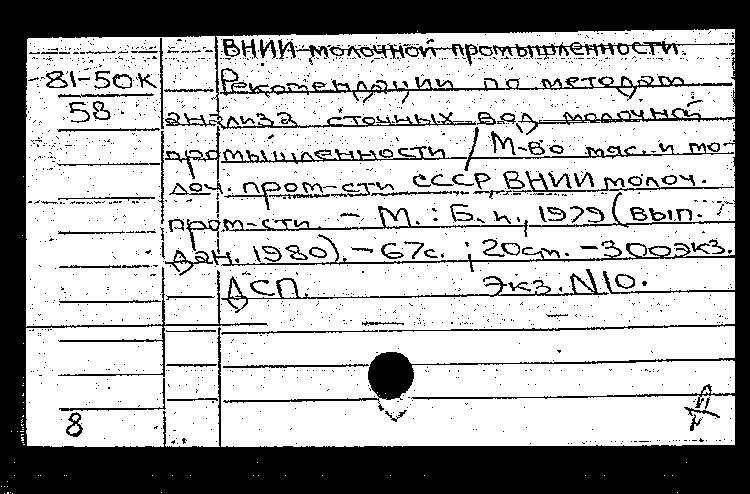 ВНИИ молочной промышленности.
81-50к
58.
Рекомендации по методам
анализа сточных вод молочной
промышленности / М-во мяс. и мо-
лоч. пром-сти СССР, ВНИИ молоч.
пром-сти. - М. : Б. и., 1979 (вып.
дан. 1980). - 67с. ; 20см. - 300экз.
ДСП. Экз. N10.
8